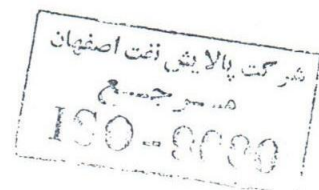 شرکت پالایش نفت اصفهان
مرجع
ISO-9000